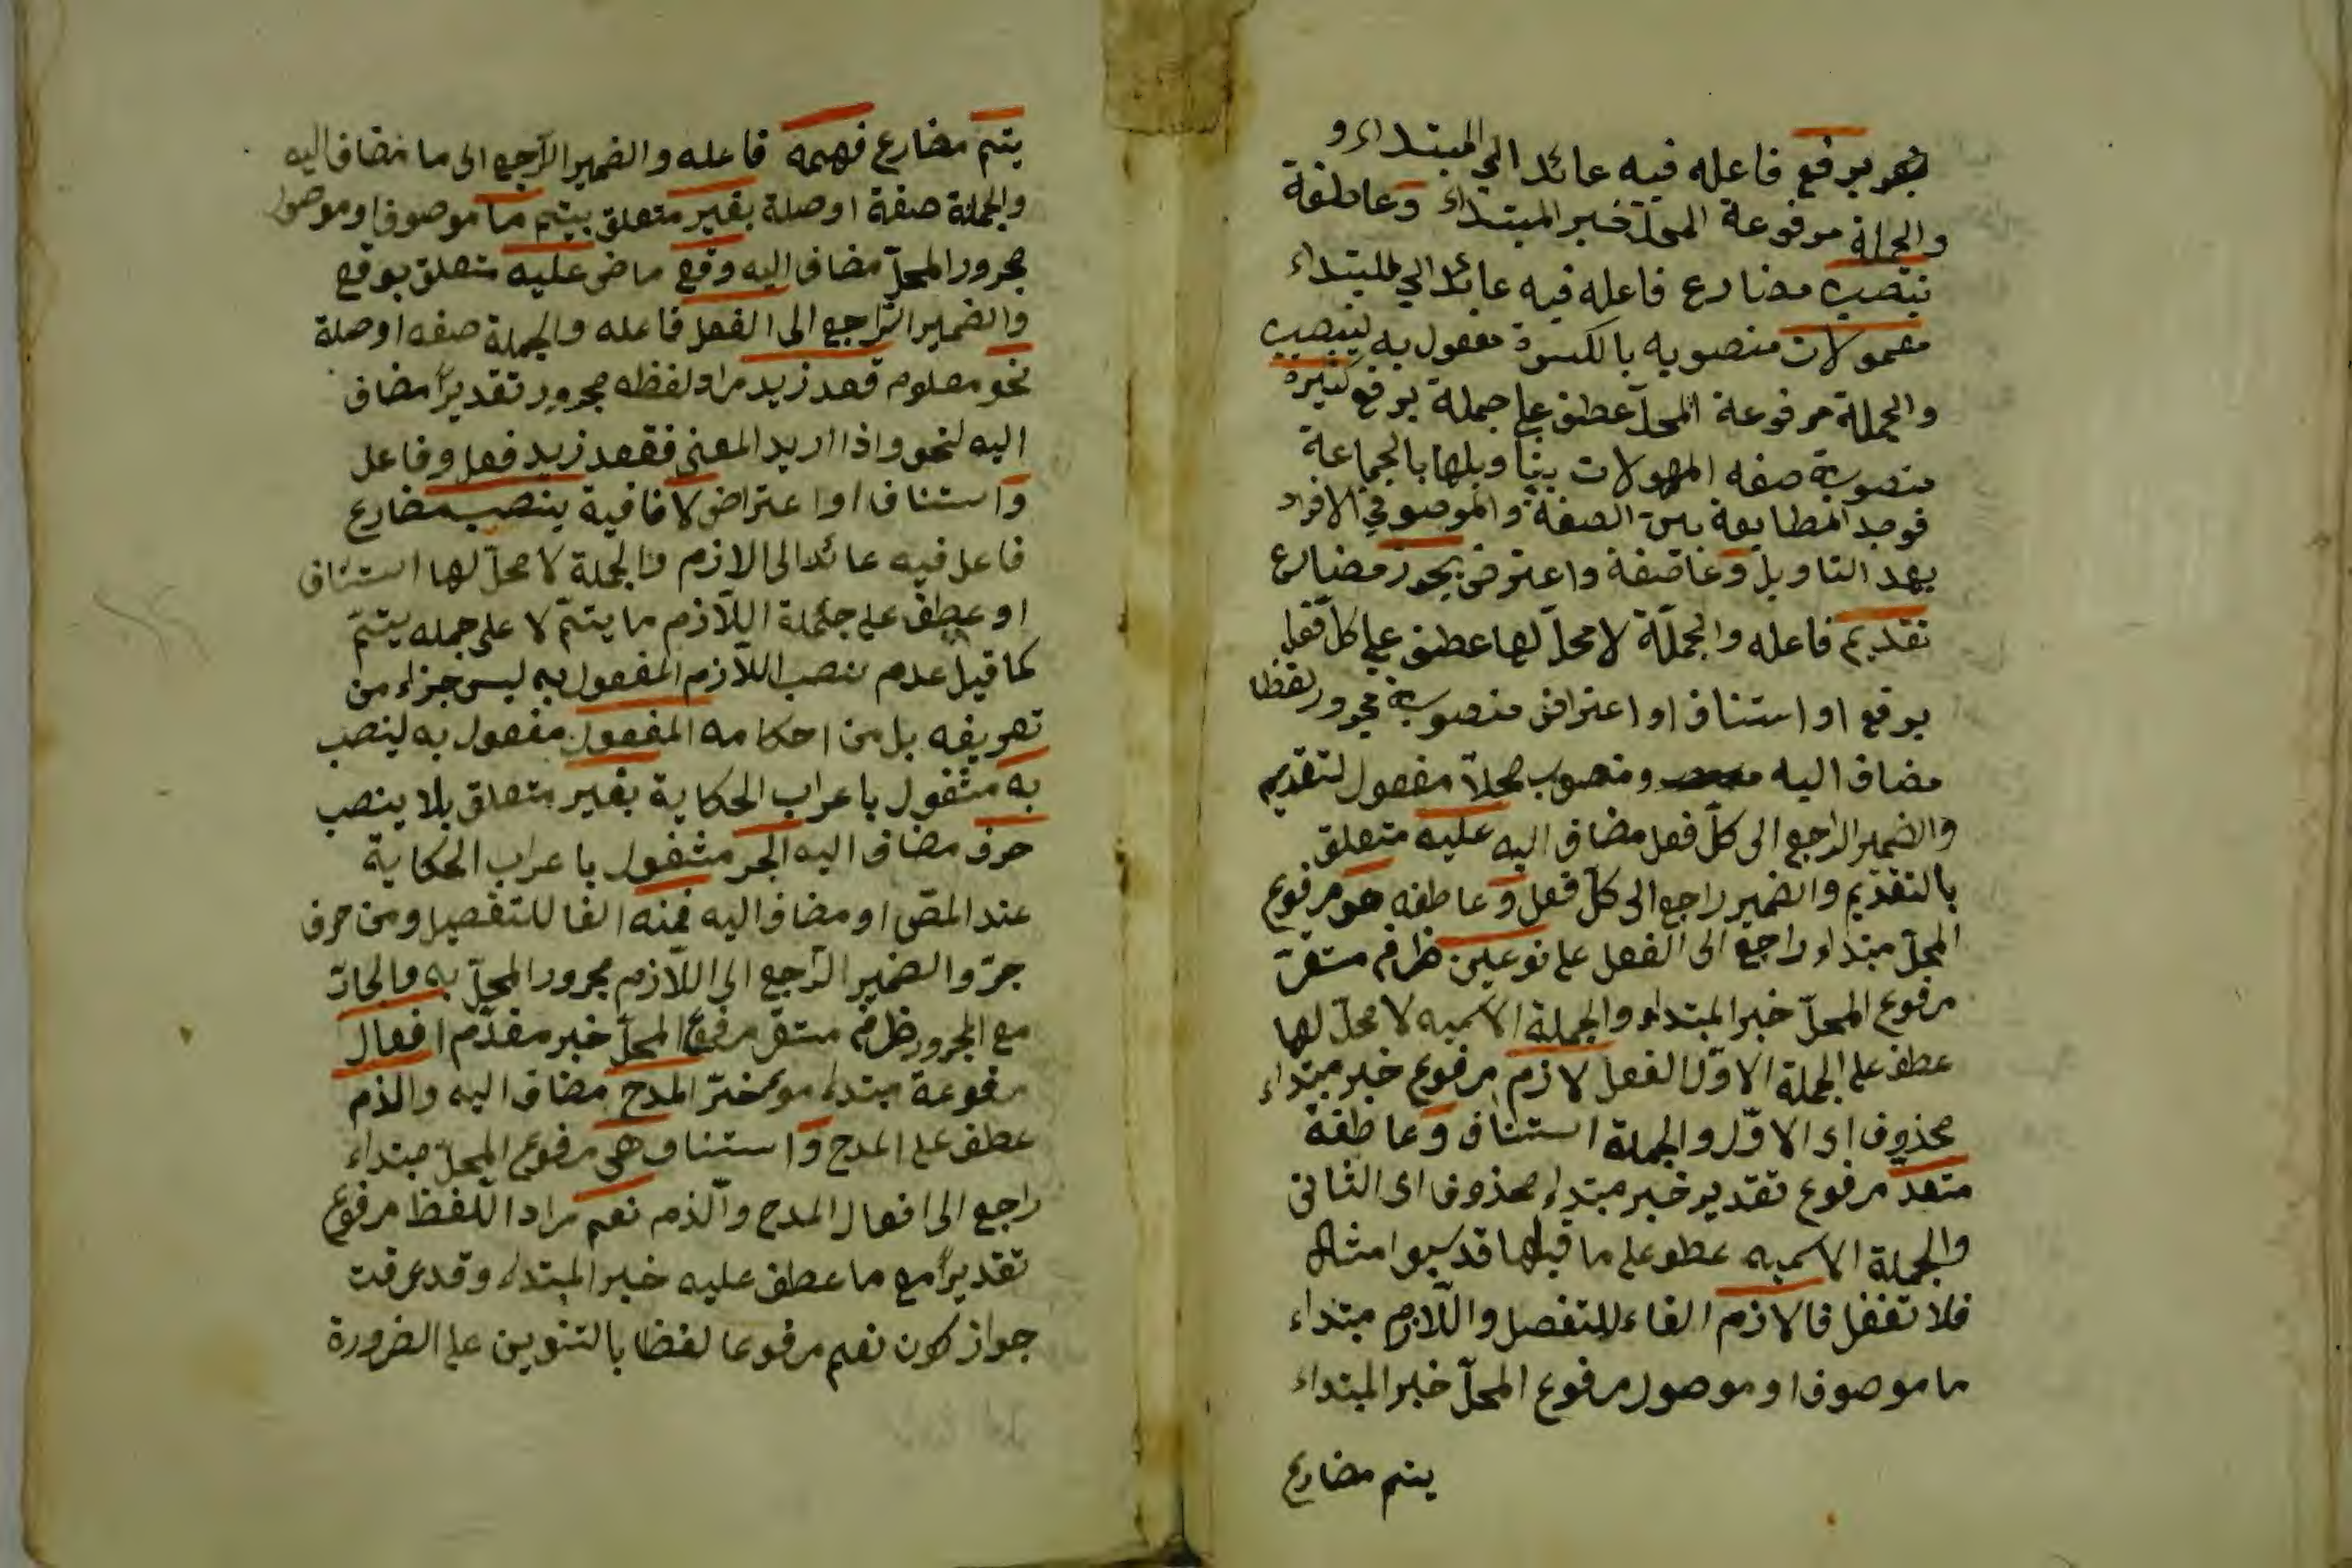 يرفع فاعله فيه عائد الي المبتداء و
والجملة مرفوعة المحل خبر المبتداء وعاطفة
ينصب مضارع فاعله فيه عائد الي المبتداء
معمولات منصوبه بالكسرة مفعول به لينصب
والجملة مرفوعة المحل عطف علي جملة يرفع كثيرة
منصوبة صفه المعمولات بتأويلها بالجماعة
فوجد المطابقة بين الصفة والموصوف في الافراد
بعد التاويل و واعترض يجوز مضارع
تقديم فاعله والجملة لا محل لها عطف علي كل فعل
يرفع او استناف او اعتراض منصوبة مجرور لفظا
مضاف اليه ومنصوب محلا مفعول لتقديم
والضمير الراجع الى كل فعل مضاف اليه عليه متعلق
بالتقديم والضمير راجع الى كل فعل وعاطفه هو مرفوع
المحل مبتداء راجع الى الفعل على نوعين ظرف مستقر
مرفوع المحل خبر المبتداء والجملة الاسميه لا محل لها
عطف على الجملة الاول الفعل لازم مرفوع خبر مبتداء
محذوف اى الاول والجملة استناف وعاطفة
متعد مرفوع تقدير خبر مبتداء محذوف اى الثانى
والجملة الاسميه عطف على ما قبلها قد امثاله
فلا تغفل فالازم الفاء للتفصل واللازم مبتداء
ما موصوف او موصول مرفوع المحل خبر المبتداء
يتم مضارع
يتم مضارع فهمه فاعله والضمير الراجع الى ما مضاف اليه
والجملة صفة او صلة بغير متعلق بيتم ما موصوف او موصول
مجرور المحل مضاف اليه وقع ماضى عليه متعلق بوقع
والضمير الراجع الى الفعل فاعله والجملة صفه او صلة
نحو معلوم قعد زيد مراد لفظه مجرور تقديرا مضاف
اليه لنحو واذا اريد المعنى فقعد زيد فعل وفاعل
و استناف او اعتراض لا نافية ينصب مضارع
فاعل فيه عائد الى الازم والجملة لا محل لها استناف
او عطف على جملة اللازم ما يتم لا على جمله يتم
كما قيل عدم نصب اللازم المفعول به ليس جزاء من
تعريفه بل من احكامه المفعول مفعول به لينصب
به مشغول باعراب الحكاية بغير متعلق بلا ينصب
حرف مضاف اليه الجر مشغول باعراب الحكاية
عند المص او مضاف اليه فمنه الفا للتفصيل ومن حرف
جر والضمير الراجع الى اللازم مجرور المحل به والجار
مع المجرور ظرف مستقر مرفوع المحل خبر مقدم افعال
مرفوعة مبتداء موخر المدح مضاف اليه والذم
عطف على المدح و استناف هى مرفوع المحل مبتداء
راجع الى افعال المدح والذم نعم مراد اللفظ مرفوع
تقديرا مع ما عطف عليه خبر المبتداء وقد عرفت
جواز كون نعم مرفوعا لفظا بالتنوين على الضرورة